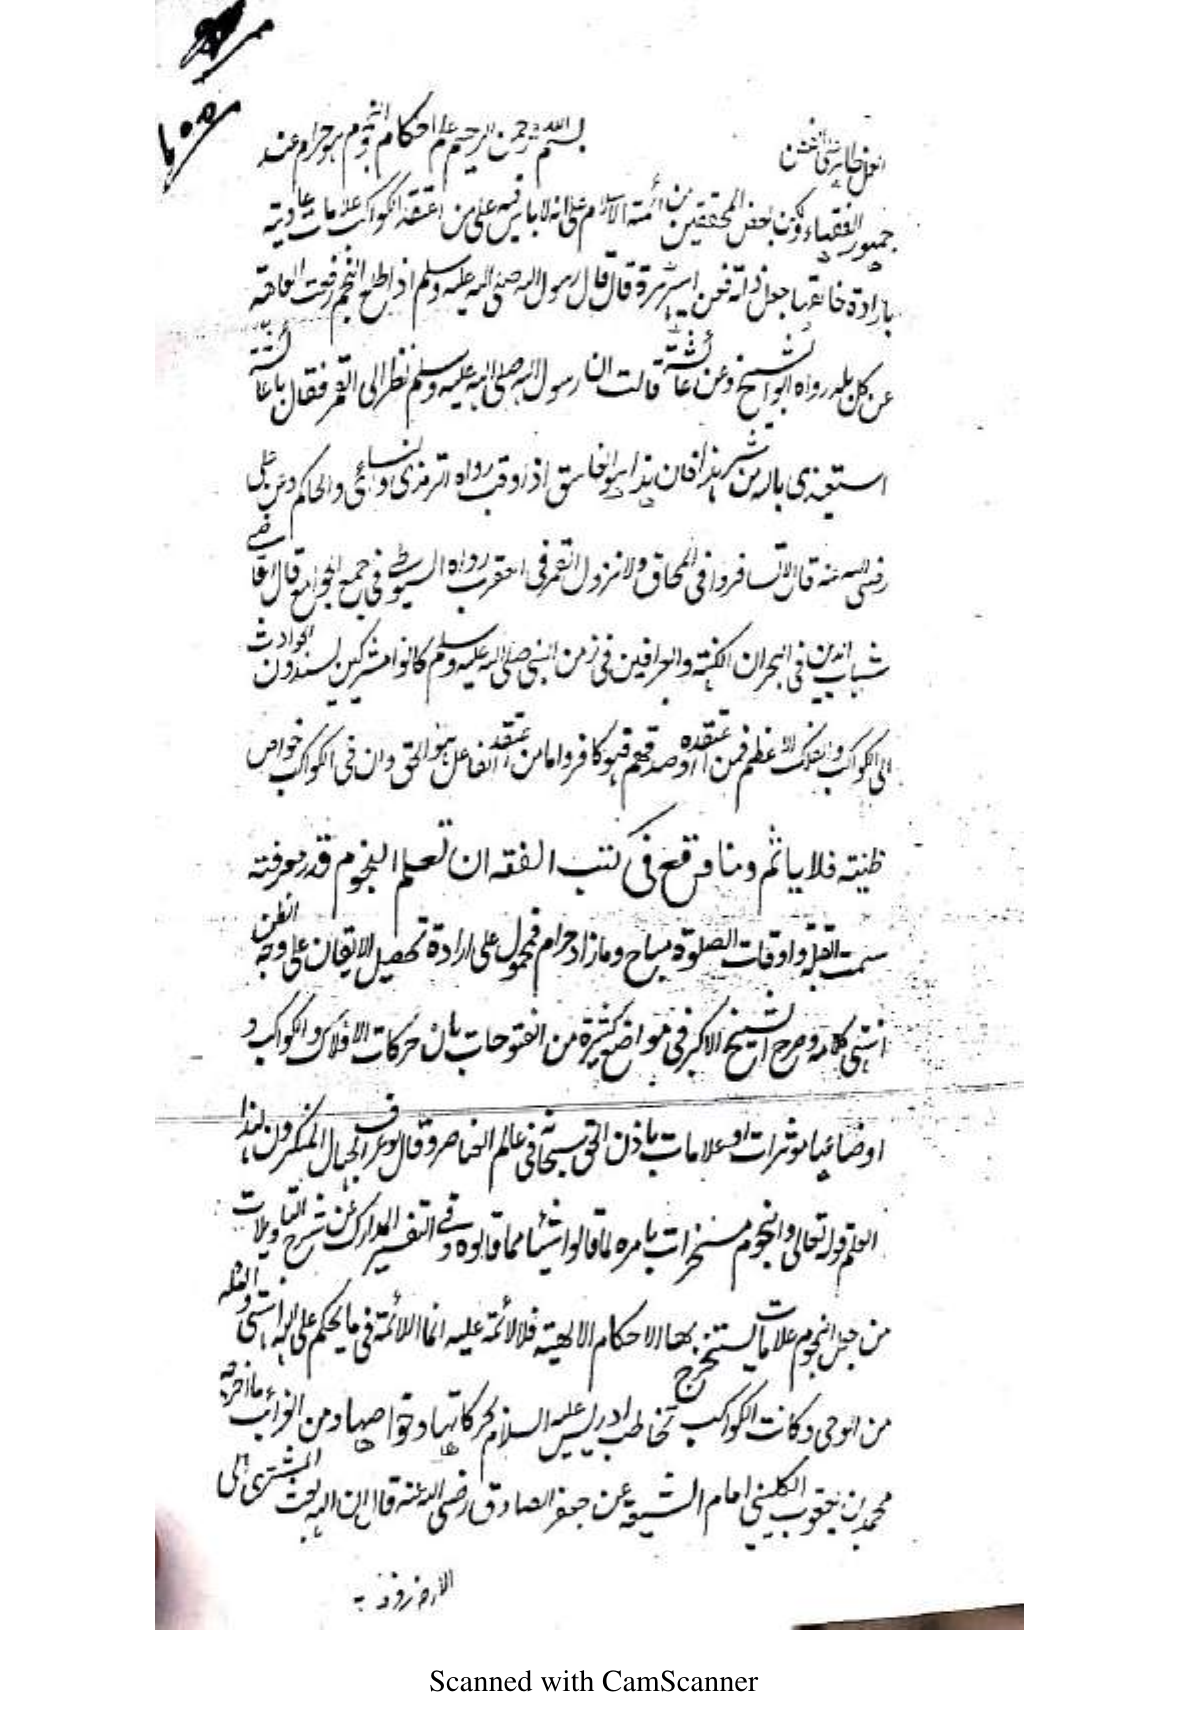 بسم الله الرحمن الرحيم علم احكام النجوم هو حرام عند
جمهور الفقهاء ولكن بعض المحققين من أئمة الاسلام على انه لا باس فيه على من اعتقد الكواكب علامات عادية
بارادة خالقها جعل ذلك فعن ابى هريرة قال قال رسول الله صلى الله عليه وسلم اذا طلع النجم رفعت العاهة
عن كل بلد رواه ابو الشيخ وعن عائشة قالت ان رسول الله صلى الله عليه وسلم نظر الى القمر فقال يا عائشة
استعيذى بالله من شر هذا فان هذا هو الغاسق اذا وقب رواه الترمذى والنسائى والحاكم وعن على
رضى الله عنه قال لا تسافروا فى المحاق ولا نزول القمر فى العقرب رواه السيوطى فى جمع الجوامع قال القاضى
شهاب الدين فى البحران الكهنة والعرافين فى زمن النبى صلى الله عليه وسلم كانوا مشركين يسندون الحوادث
الى الكواكب والفلك الاعظم فمن اعتقده او صدقهم فهو كافر واما من اعتقد الفاعل هو الحق وان فى الكواكب خواص
ظنية فلا ياثم وما وقع فى كتب الفقه ان تعلم النجوم قدر معرفته
سمت القبلة واوقات الصلوة مباح وما زاد حرام فمحمول على ارادة تحصيل الايقان على وجه الظن
انتهى كلامه وصرح الشيخ الاكبر فى مواضع كثيرة من الفتوحات بان حركات الافلاك والكواكب و
اوضاعها مؤثرات او علامات باذن الحق سبحانه فى عالم العناصر وقال لو عرف الجهال المنكرون لهذا
العلم قوله تعالى والنجوم مسخرات بامره لما قالوا شيئا مما قالوه وفى التفسير المدارك عن شرح التاويلات
من جعل النجوم علامات يستخرج بها الاحكام الالهية فلا لائمة عليه انما اللائمة فى ما يحكم على الله انتهى
من الوحى وكانت الكواكب تخاطب ادريس عليه السلام بحركاتها وخواصها ومن الغرائب ما اخرجه
محمد بن يعقوب الكلينى امام الشيعة عن جعفر الصادق رضى الله عنه قال ان الله بعث المشترى الى
الارض
Scanned with CamScanner